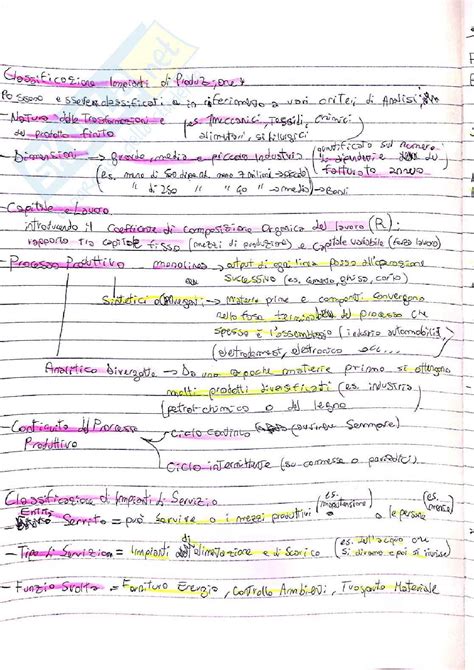 Classificazione Impianti di Produzione
Possono essere classificati in riferimento a vari criteri di Analisi:
- Natura delle Trasformazioni e (es. meccanici, Tessili, chimici
del prodotto finito alimentari, siderurgici
- Dimensioni → grande, media e piccola industria (quantificata sul numero
di dipendenti e del
fatturato annuo
(es. meno di 50 dipend. meno 7 milioni → piccola)
" di 250 " " 40 → media)
- Capitale e Lavoro
introducendo il Coefficiente di composizione Organica del lavoro (R):
rapporto tra capitale fisso (mezzi di produzione) e capitale variabile (forza lavoro)
- Processo Produttivo monolinea → output di ogni linea passa all'operazione
successiva (es. cemento, ghisa, carta)
Sintetici → Materie prime e componenti convergono
nella fase terminale del processo che
spesso è l'assemblaggio (industria automobili,
elettrodomestici, elettronica ecc...
Analitico Divergente → Da una o poche materie prime si ottengono
molti prodotti diversificati (es. industria
petrolchimica o del legno
- Continuità del Processo
Produttivo
Ciclo continuo
Ciclo intermittente (su commessa o periodici).
Classificazione di Impianti di Servizio
- Servito = può servire o i mezzi produttivi (es. manutenzione) o le persone (es. mensa)
- Tipo di Servizio = Impianti di alimentazione e di Scarico (es. dell'acqua che
- Funzione Svolta = Fornitura Energia, Controllo Ambienti, Trasporto Materiale